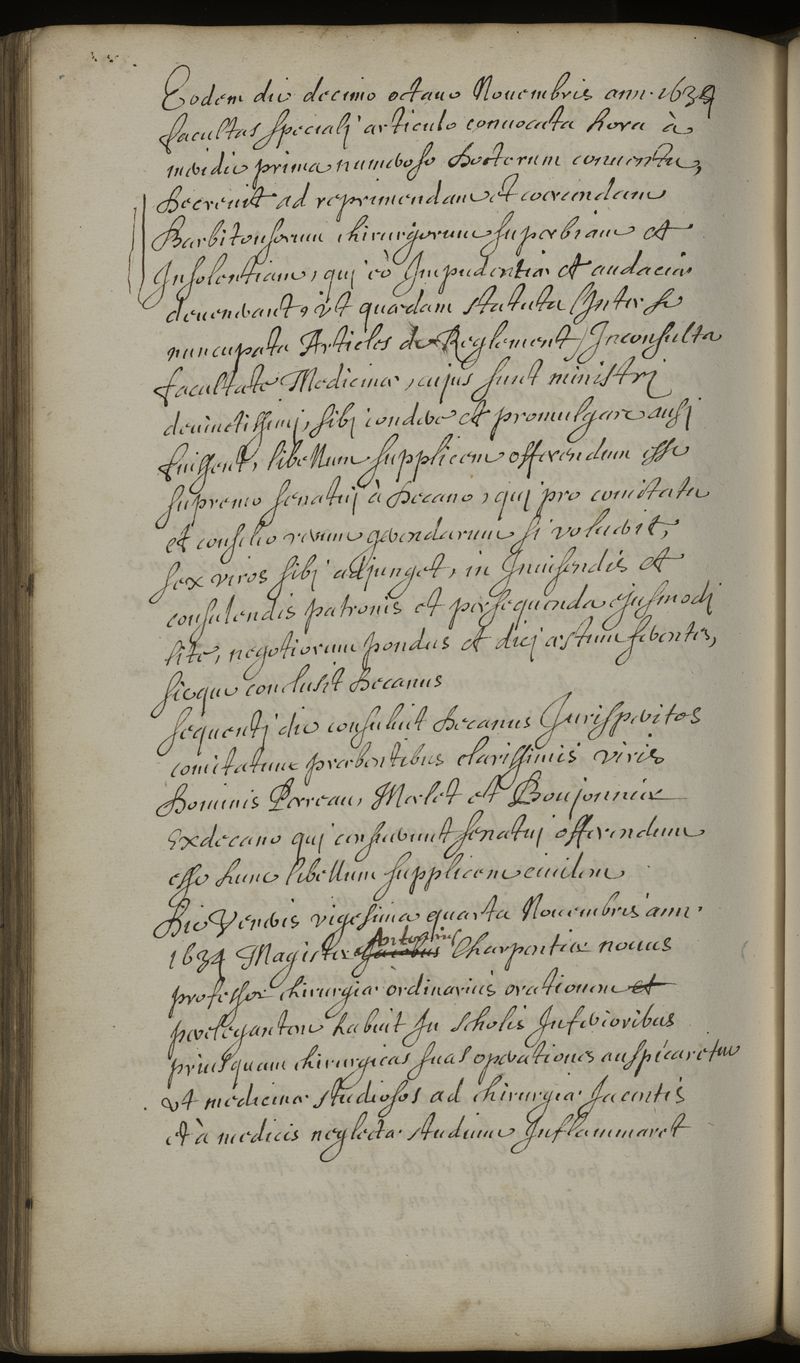 Eodem die decimo octauo Nouembris ann. 1634
facultas speciali articulo conuocata hora à
meridie prima numeroso Doctorum conuentu,
Decreuit ad reprimendam et coercendam
Barbitonsorum chirurgorum superbiam et
Insolentiam, qui eò Impudentiæ et audaciæ
deuenerant, vt quædam statuta (Inter se
nuncupata Articles de Reglement) Inconsulta
facultate Medicinæ, cujus sunt ministri
deuinctissimi, sibi condere et promulgare ausi
fuissent, libellum supplicem offerendum esse
supremo senatui à Decano, qui pro comitatu
et consilio rerum gerendarum si voluerit,
sex viros sibi adjunget, in Inuisendis et
consulendis patronis et persequenda ejusmodi
lite, negotiorum pondus et diei æstum ferentes,
sicque conclusit Decanus
sequenti die consuluit Decanus Jurisperitos
comitatum præbentibus clarissimis viris
Dominis Perreau, Merlet et Boujonnier
Exdecano qui censuerunt senatui offerendum
esse hunc libellum supplicem ciuilem
Die Veneris vigesima quarta Nouembris ann.
1634 Magister Jacobus Antonius Charpentier nouus
professor chirurgiæ ordinarius orationem et
perelegantem habuit In scholis Inferioribus
priusquam chirurgicas suas operationes auspicaretur
vt medicinæ studiosos ad chirurgiæ Jacentis
et à medicis neglectæ studium Inflammaret